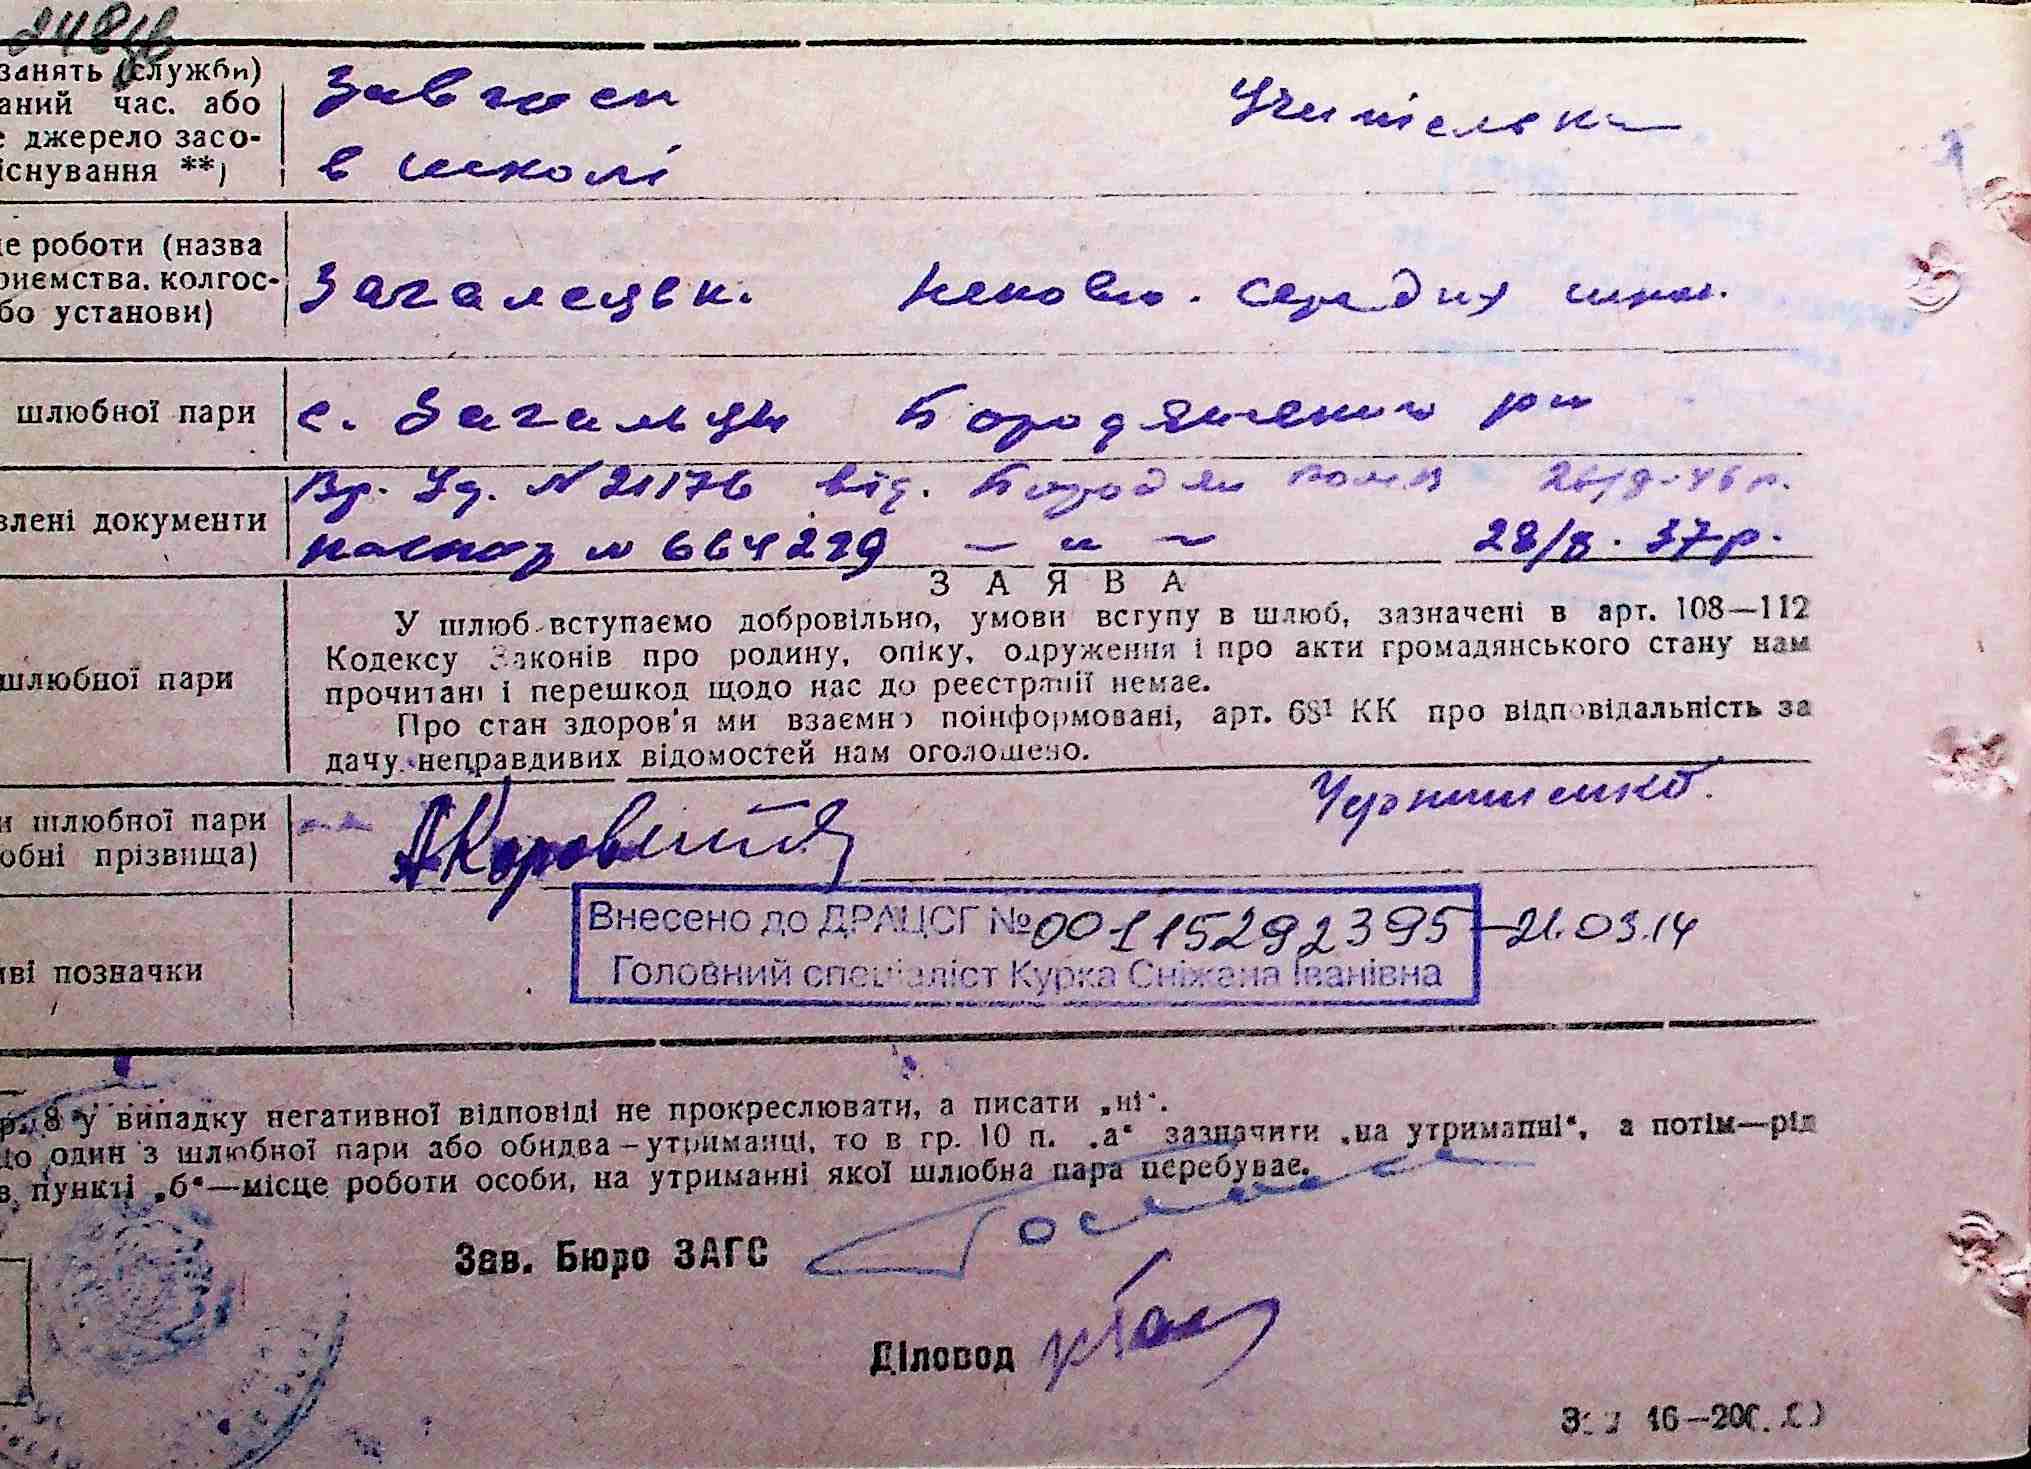 занять (служби) Завгосп Учителька
аний час. або
е джерело засо- в школі
існування **)
це роботи (назва
риємства. колгос- Загалецьк. неповно. середня школ.
бо установи)
шлюбної пари с. Загальці Бородянського р-н
Вр. Уд. № 21176 від. Бородян 26/8-46 р.
влені документи паспорт № 664229 — „ — 28/8. 37 р.
З А Я В А
У шлюб вступаємо добровільно, умови вступу в шлюб, зазначені в арт. 108—112
Кодексу Законів про родину, опіку, одруження і про акти громадянського стану нам
шлюбної пари прочитані і перешкод щодо нас до реєстрації немає.
Про стан здоров'я ми взаємно поінформовані, арт. 68¹ КК про відповідальність за
дачу неправдивих відомостей нам оголошено.
и шлюбної пари Чернишенко.
обні прізвища)
Внесено до ДРАЦСГ № 00115292395 — 21.03.14
иві позначки Головний спеціаліст Курка Сніжана Іванівна
р. 8 у випадку негативної відповіді не прокреслювати, а писати „ні“.
що один з шлюбної пари або обидва — утриманці, то в гр. 10 п. „а“ зазначити „на утриманні“, а потім—рід
в пункті „б“—місце роботи особи, на утриманні якої шлюбна пара перебуває.
Зав. Бюро ЗАГС
Діловод